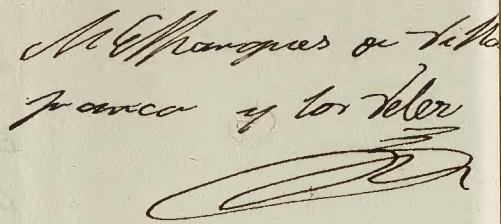 M El Marques de Villa
franca y los Velez